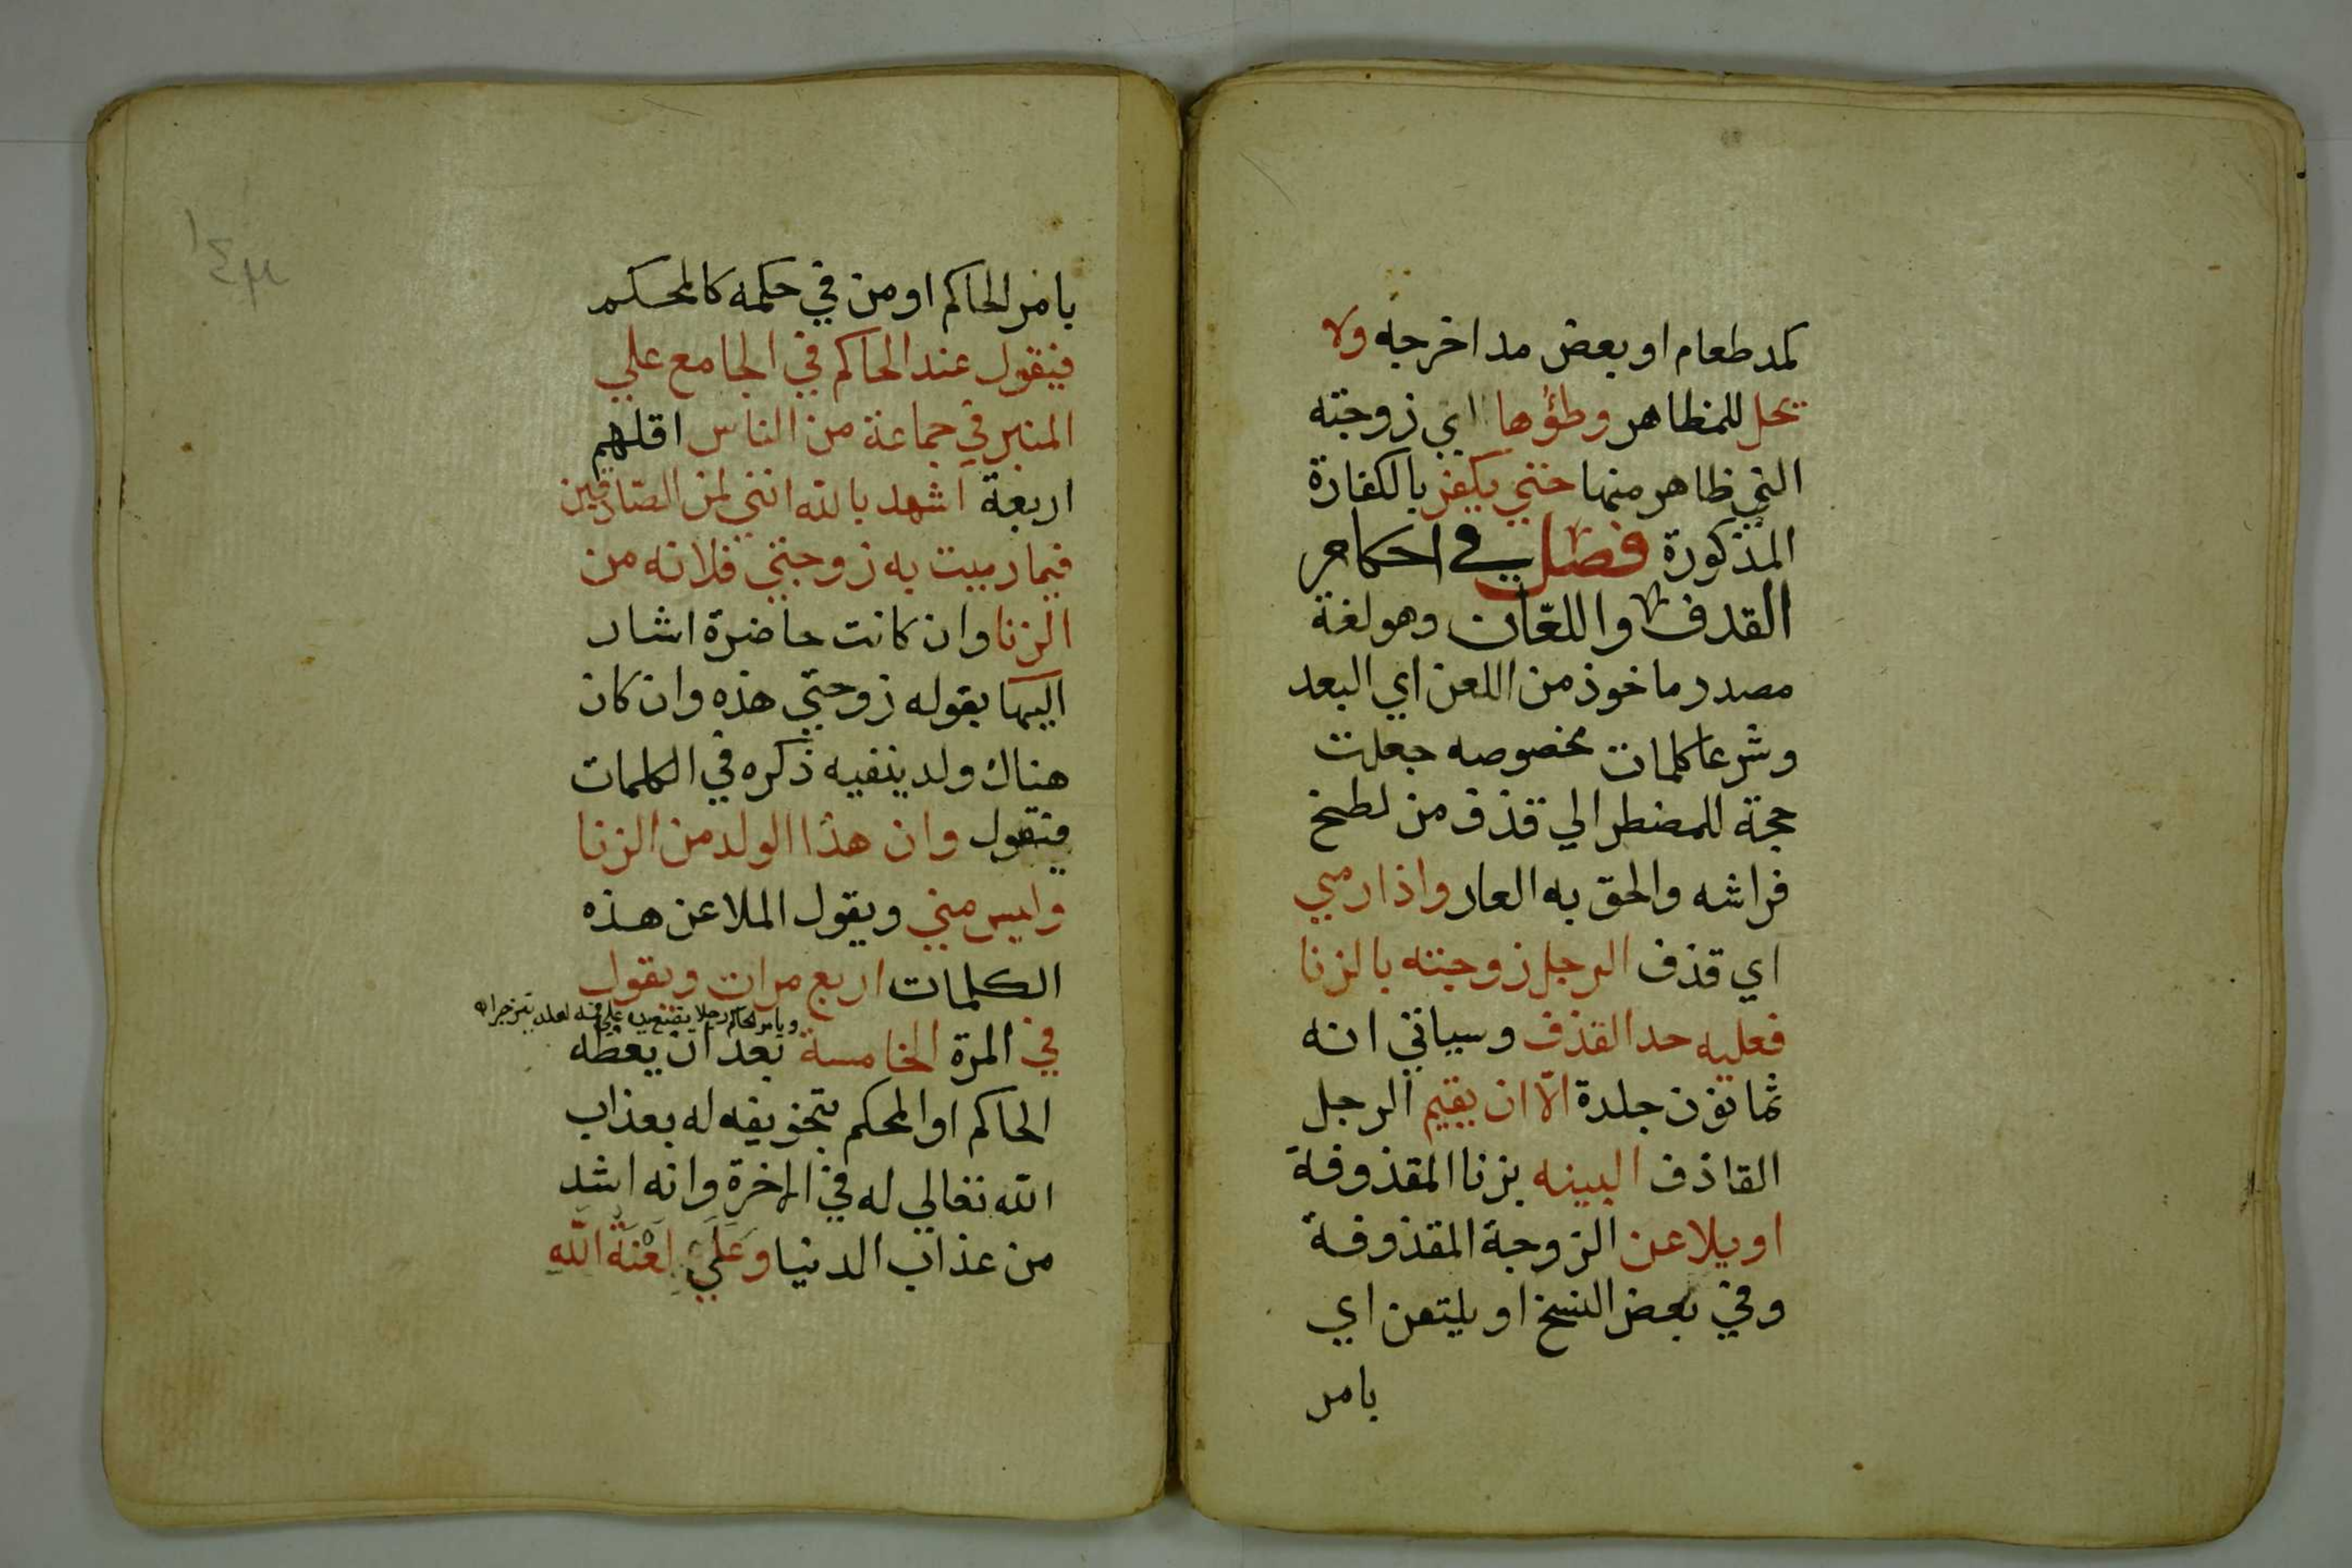 كمد طعام او بعض مد اخرجه ولا
يحل للمظاهر وطؤها اي زوجته
التي ظاهر منها حتي يكفر بالكفارة
المذكورة فصل في احكام
القدف واللعان وهو لغة
مصدر ماخوذ من اللعن اي البعد
وشرعا كلمات مخصوصه جعلت
حجة للمضطر الي قذف من لطخ
فراشه والحق به العار واذا رمي
اي قذف الرجل زوجته بالزنا
فعليه حد القذف وسياتي انه
ثمانون جلدة الّا ان يقيم الرجل
القاذف البينه بزنا المقذوفة
او يلاعن الزوجة المقذوفة
وفي بعض النسخ او يلتعن اي
بامر
بامر الحاكم او من في حكمه كالمحكم
فيقول عند الحاكم في الجامع علي
المنبر في جماعة من الناس اقلهم
اربعة اشهد بالله انني لمن الصادقين
فيما رميت به زوجتي فلانه من
الزنا وان كانت حاضرة اشار
اليها بقوله زوجتي هذه وان كان
هناك ولد ينفيه ذكره في الكلمات
فيقول وان هذا الولد من الزنا
وليس مني ويقول الملاعن هذه
الكلمات اربع مرات ويقول
ويامر الحاكم رجلا يضع يده علي فيه لعله
في المرة الخامسة بعد ان يعظه
الحاكم او المحكم بتخويفه له بعذاب
الله تعالي له في الاخرة وانه اشد
من عذاب الدنيا وَعَلَيَّ لَعْنَةُ اللّهِ